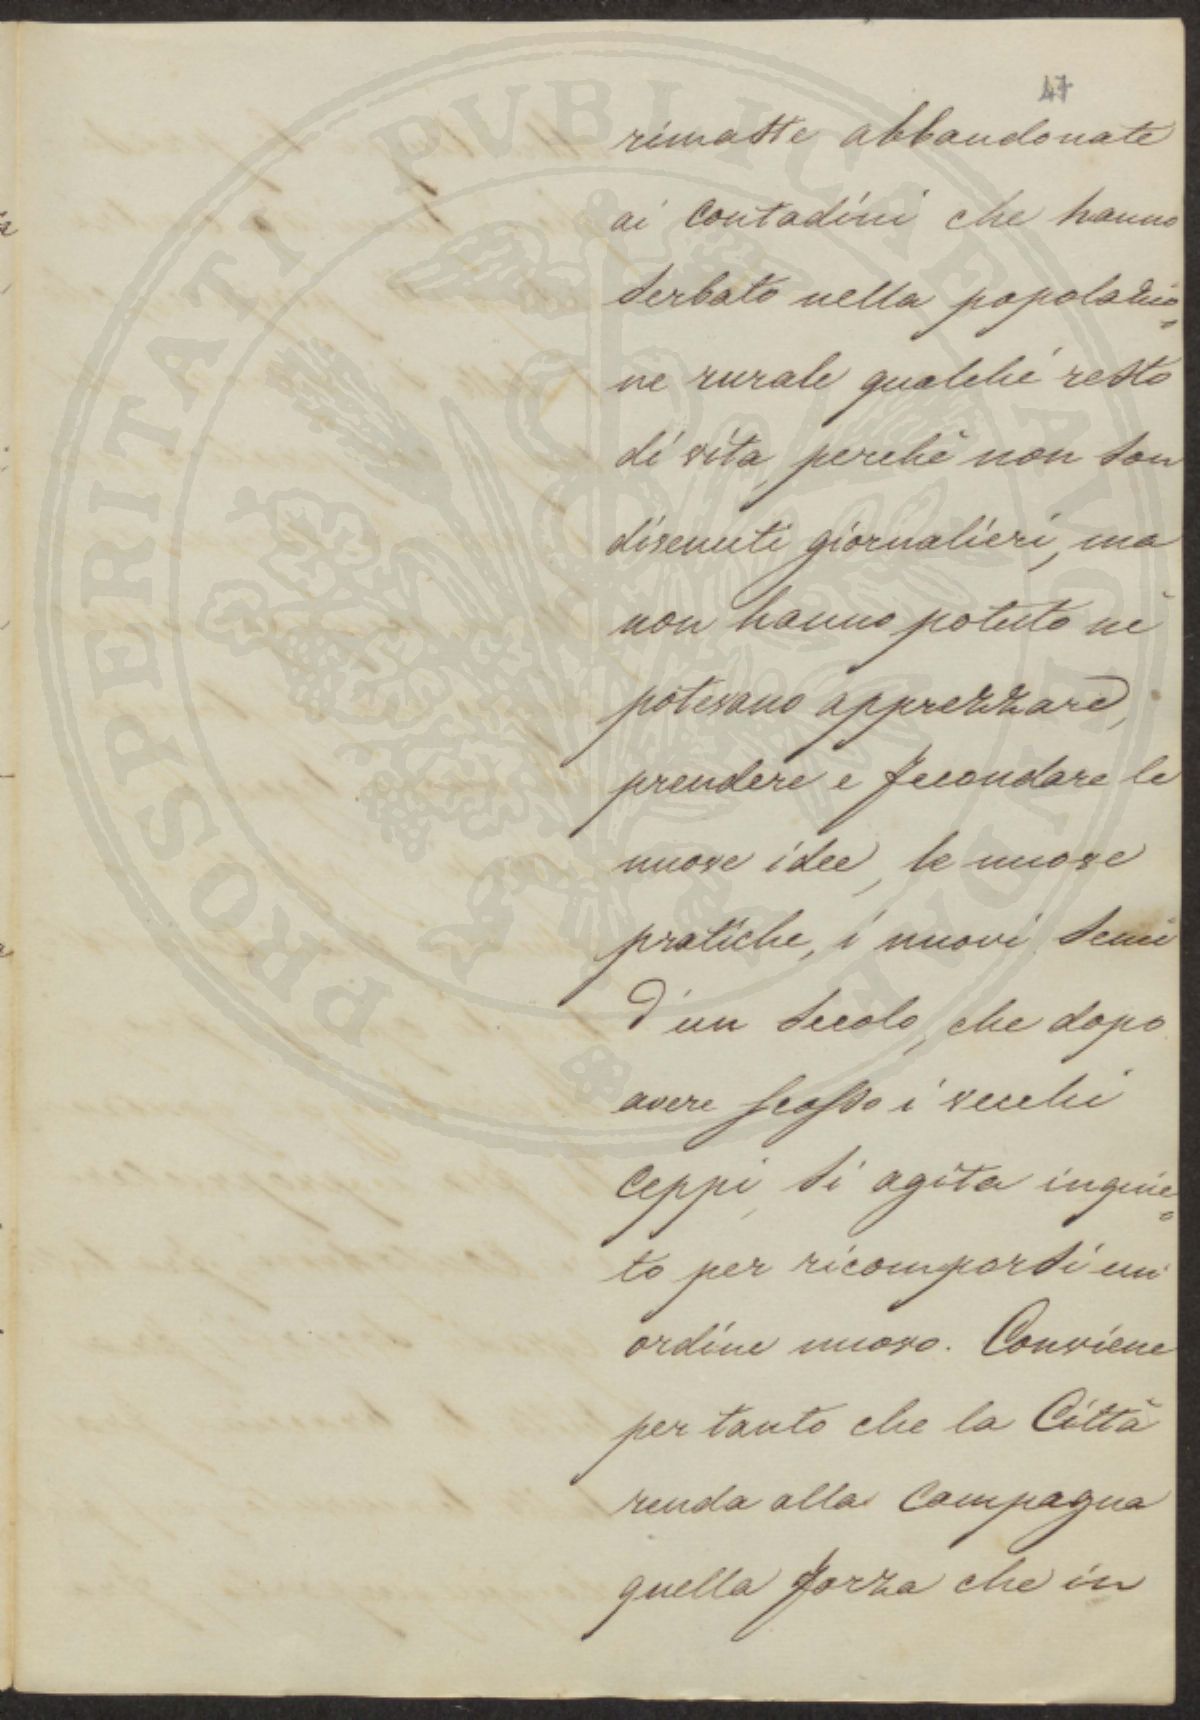 47
rimaste abbandonate
ai contadini che hanno
serbato nella popolazio=
ne rurale qualche resto
di vita, perchè non son
divenuti giornalieri, ma
non hanno potuto nè
potevano apprezzare,
prendere e fecondare le
nuove idee, le nuove
pratiche, i nuovi semi
d'un secolo, che dopo
avere scosso i vecchi
ceppi, si agita inquie=
to per ricomporsi un
ordine nuovo. Conviene
per tanto che la Città
renda alla Campagna
quella forza che in
PROSPERITATI PVBLICAE AVGENDAE